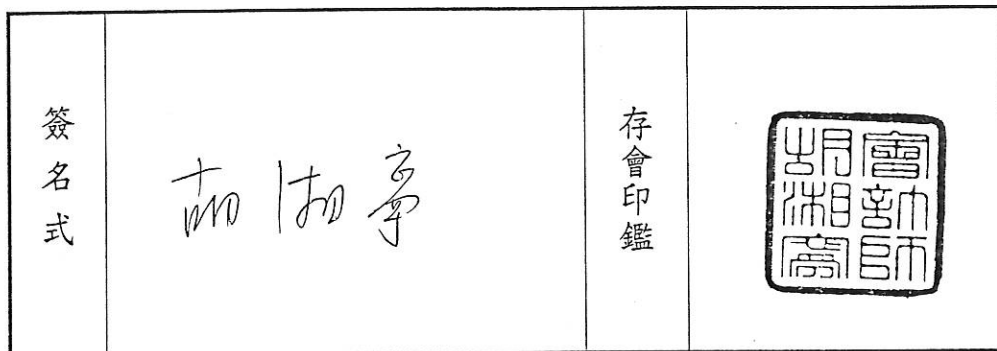 簽名式
胡湘寧
存會印鑑
會計師
胡湘寧